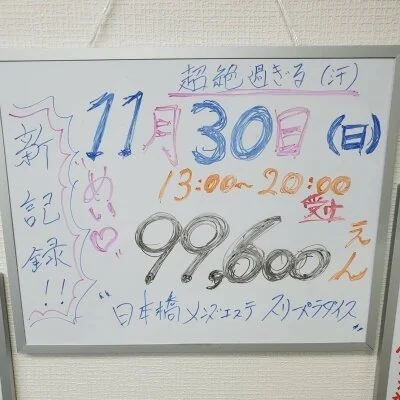 超絶過ぎる(汗)
11月30日(日)
新記録!!
めい♡
13:00～20:00
受け
99,600えん
"日本橋メンズエステ スリーパラダイス"